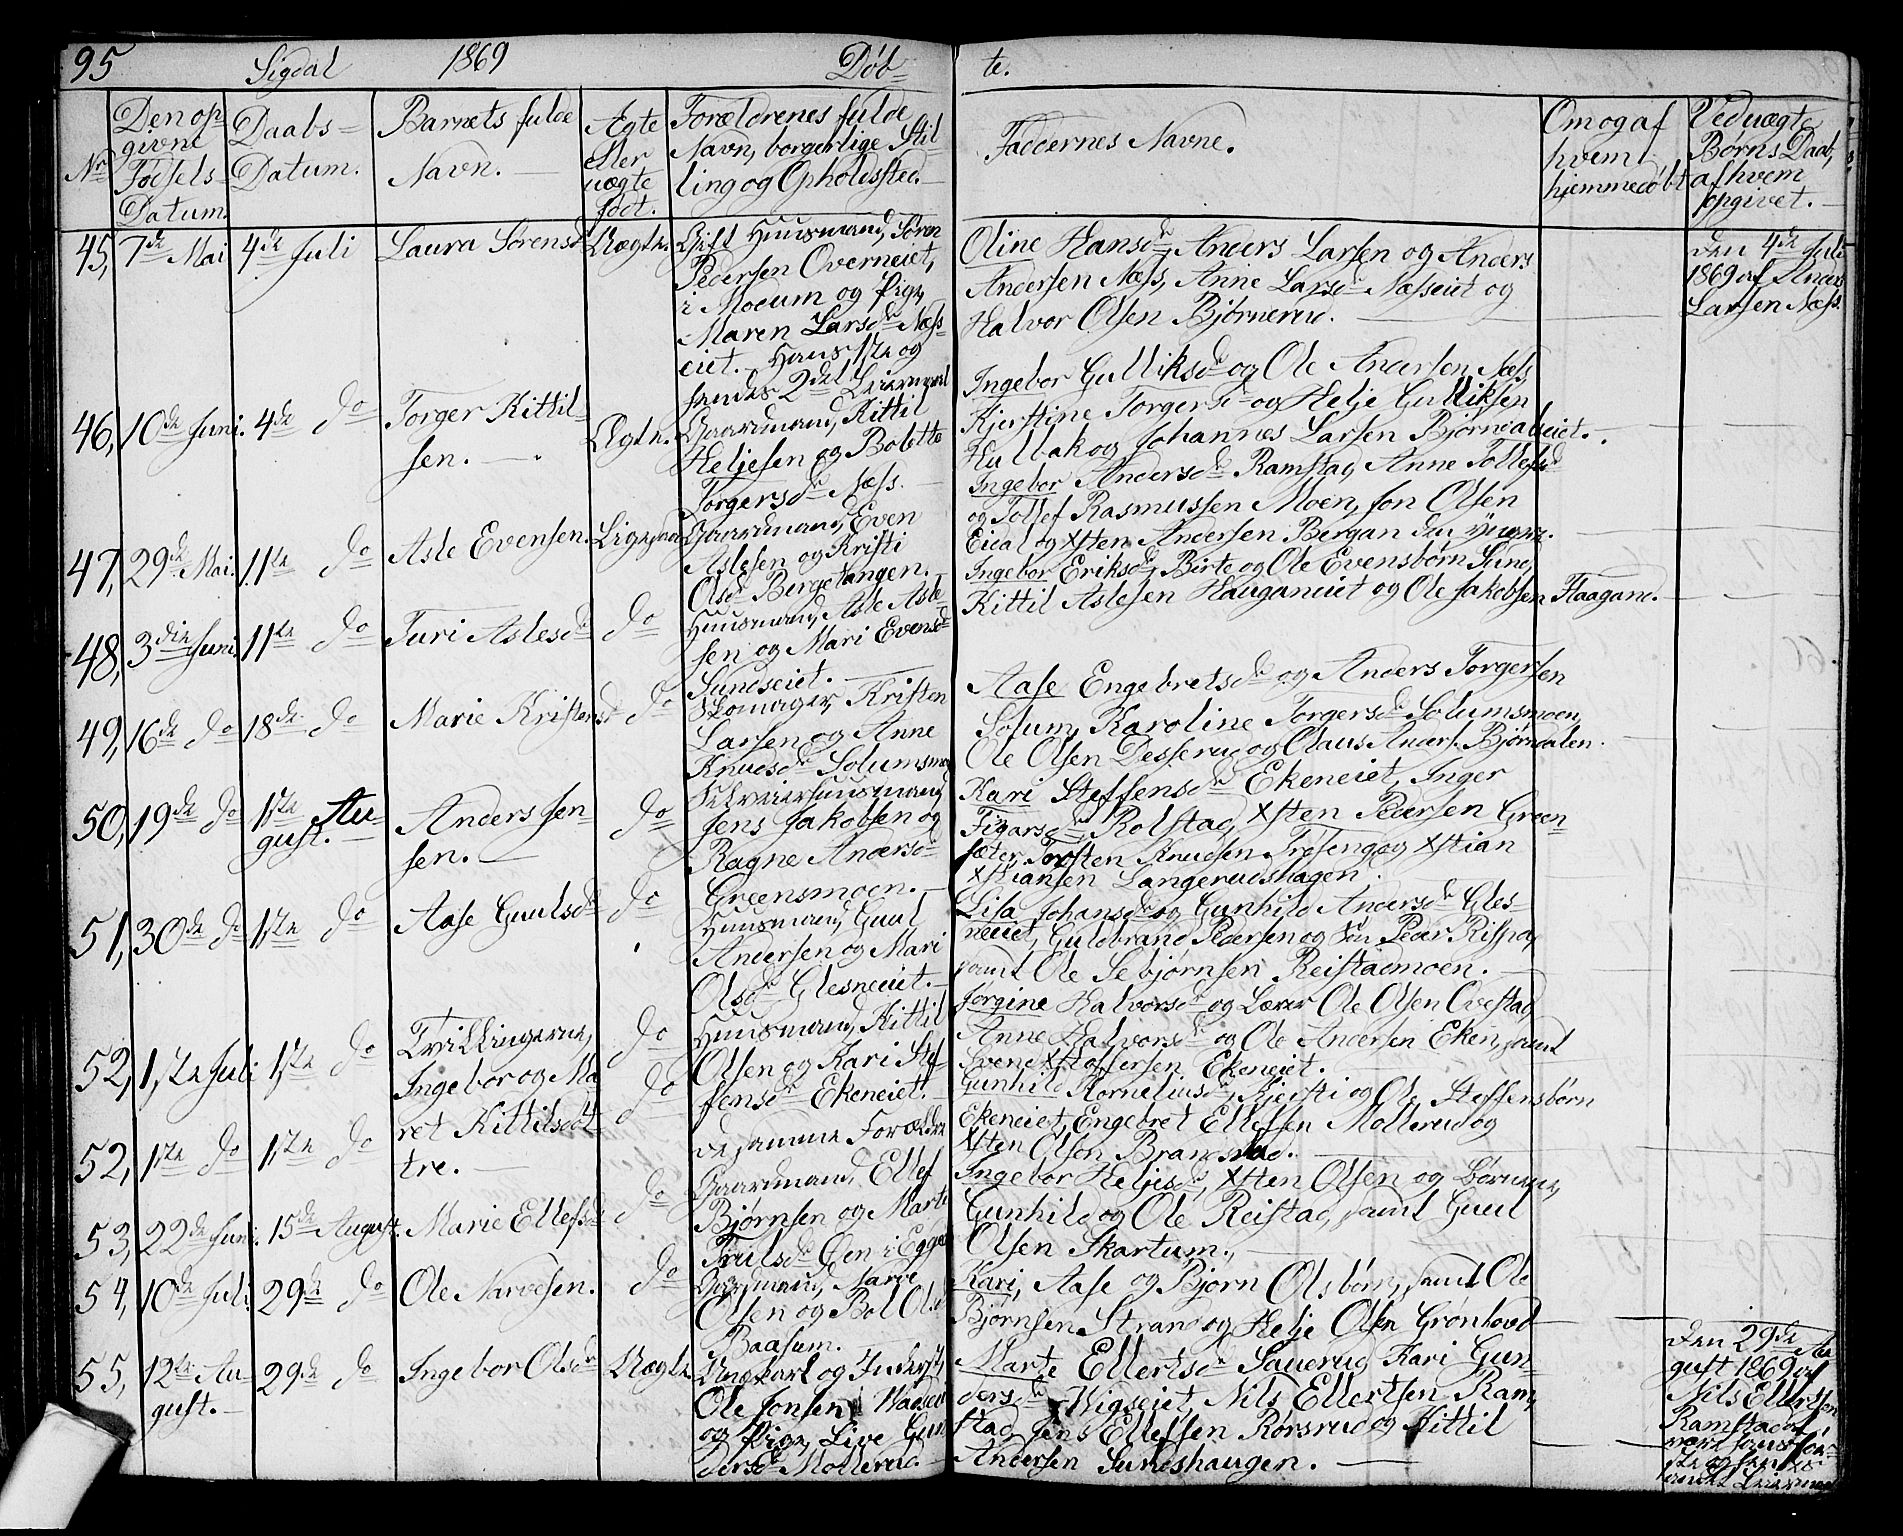 95 Sigdal 1869 Døb= te.
Nr
Den op
givne
Fødsels
Datum.
Daabs=
Datum.
Barnets fulde
Navn. —
Ægte
eller
uægte
født.
Forældrenes fulde
Navn, borgerlige Stil
ling og Opholdssted.—
Faddernes Navne.
Om og af
hvem
hjemmedøbt
Ved uægte
Børns Daab,
af hvem
opgivet.—
45, 7de Mai 4de Juli Laura Sørensd. Uægte.
Gift Huusmand, Søren
Pedersen Overneiet,
i Modum og Pige,
Maren Larsdr Næss-
eiet.— Hans 1te og
hendes 2det Leiermaal
Oline Hansdr, Anders Larsen og Anders
Andersen Næss, Anne Larsdr Næsseiet og
Halvor Olsen Bjørnerud.
Den 4de Juli
1869 af Anders
Larsen Næss.
46, 10de Juni. 4de do Torger Kittil-
sen.— Ægte.
Gaardmand, Kittil
Heljesen og Bolette
Torgersdr Næss.—
Ingebor Gulliksdr og Ole Andersen Næss,
Kjerstine Torgersdr og Helje Gulliksen
Hulbak og Johannes Larsen Bjørnerudeiet.
47, 29de Mai. 11te do Asle Evensen. Ligesaa
Gaardmand, Even
Aslesen og Kristi
Olsdr Bergetangen.—
Ingebor Andersdr Ramstad, Anne Tollefsdr
og Tollef Rasmussen Moen, Jon Olsen
Eidal og Xsten Andersen Bergan den yngre.
48, 3die Juni. 11te do Turi Aslesdr do
Huusmand, Asle Asle-
sen og Mari Evensdr
Sundseiet.—
Ingebor Eriksdr, Birte og Ole Evensbørn Sund,
Kittil Aslesen Hauganeiet og Ole Jakobsen Haagans.
49, 16de do 18de do Marie Kristensd do
Skomager, Kristen
Larsen og Anne
Knudsdr Solumsmoen
Aase Engebretsdr og Anders Torgersen
Solum, Karoline Torgersdr Solumsmoen,
Ole Olsen Desserud og Olaus Anders. Bjørndalen.
50, 19de do 1ste Au-
gust.—
Anders Jen-
sen.— do
Selveierhuusmand,
Jens Jakobsen og
Ragne Andersdr
Greensmoen.—
Kari Steffensdr Ekeneiet, Inger
Figarsdr Rolstad, Xsten Pedersen Green-
sæter, Torsten Knudsen Frøseng og Xstian
Xstiansen Langerudshagen.
51, 30de do 1ste do Aase Guulsdr do
Huusmand, Guul
Andersen og Mari
Olsdr Glesneeiet.—
Lisa Johansdr og Gunhild Andersdr Gles-
neeiet, Guldbrand Pedersen og Søn Peder Rispa,
samt Ole Sebjørnsen Reistadmoen.—
52, 1ste Juli 1ste do Tvillingerne,
Ingebor og Ma
ret Kittilsdøt
tre.— do
Huusmand, Kittil
Olsen og Kari Stef-
fensdr Ekeneiet.—
Jørgine Halvorsdr og Lærer Ole Olsen Ovestad,
Anne Halvorsdr og Ole Andersen Eken, samt
Svend Xstoffersen Ekeneiet.
52, 1ste do 1ste do do
de samme Forældre
Gunhild Korneliusdr, Kjersti og Ole Steffensbørn
Ekeneiet, Engebret Ellefsen Mollerud og
Xsten Olsøn Brandstad.
53, 22de Juni. 15de August. Marie Ellefsdr do
Gaardmand, Ellef
Bjørnsen og Marte
Trulsdr Øen i Eggedal
Ingebor Heljesdr, Xsten Olsen og Børnene,
Gunhild og Ole Reistad, samt Guul
Olsen Skartum.—
54, 10de Juli 29de do Ole Narvesen. do
Gaardmand, Narve
Olsen og Bol Olsdr
Baasum.
Kari, Aase og Bjørn Olsbørn, samt Ole
Bjørnsen Strand og Helje Olsen Grønhovd
55, 12te Au-
gust.—
29de do Ingebor Olsdr Uægte
Ungkarl og Inderst,
Ole Jonsen
og Pige, Live Gun
dersdr Mollerud—
Marte Ellertsdr Sauerud, Kari Gun-
dersdr Wigseiet, Nils Ellertsen Ram-
stad, Jens Ellefsen Rørsrud og Kittil
Andersen Sundshaugen.—
Den 29de Au
gust 1869 af
Nils Ellertsen
Ramstad,